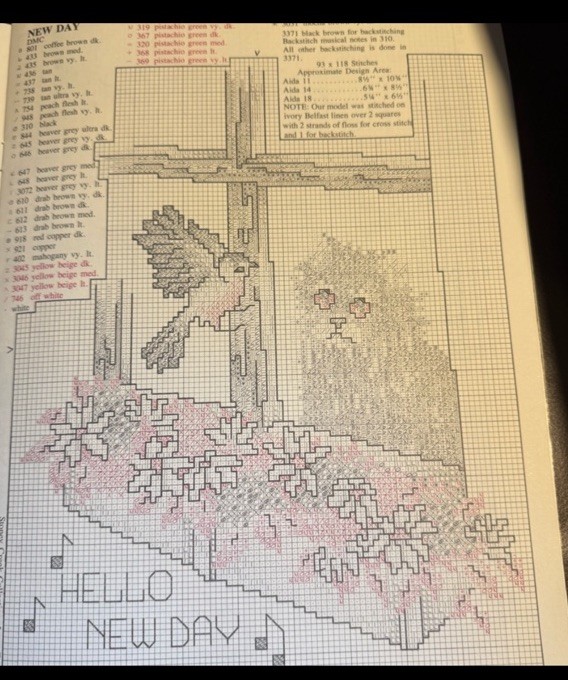 NEW DAY
DMC
801 coffee brown dk.
433 brown med.
435 brown vy. lt.
436 tan
437 tan lt.
738 tan vy. lt.
739 tan ultra vy. lt.
754 peach flesh lt.
948 peach flesh vy. lt.
310 black
844 beaver grey ultra dk.
645 beaver grey vy. dk.
646 beaver grey dk.
647 beaver grey med.
648 beaver grey lt.
3072 beaver grey vy. lt.
610 drab brown vy. dk.
611 drab brown dk.
612 drab brown med.
613 drab brown lt.
918 red copper dk.
921 copper
402 mahogany vy. lt.
3045 yellow beige dk.
3046 yellow beige med.
3047 yellow beige lt.
746 off white
white
319 pistachio green vy. dk.
367 pistachio green dk.
320 pistachio green med.
368 pistachio green lt.
369 pistachio green vy. lt.
3371 black brown for backstitching
Backstitch musical notes in 310.
All other backstitching is done in
3371.
93 x 118 Stitches
Approximate Design Area:
Aida 11 ............ 8½" x 10¾"
Aida 14 ............ 6¾" x 8½"
Aida 18 ............ 5¼" x 6½"
NOTE: Our model was stitched on
ivory Belfast linen over 2 squares
with 2 strands of floss for cross stitch
and 1 for backstitch.
HELLO
NEW DAY